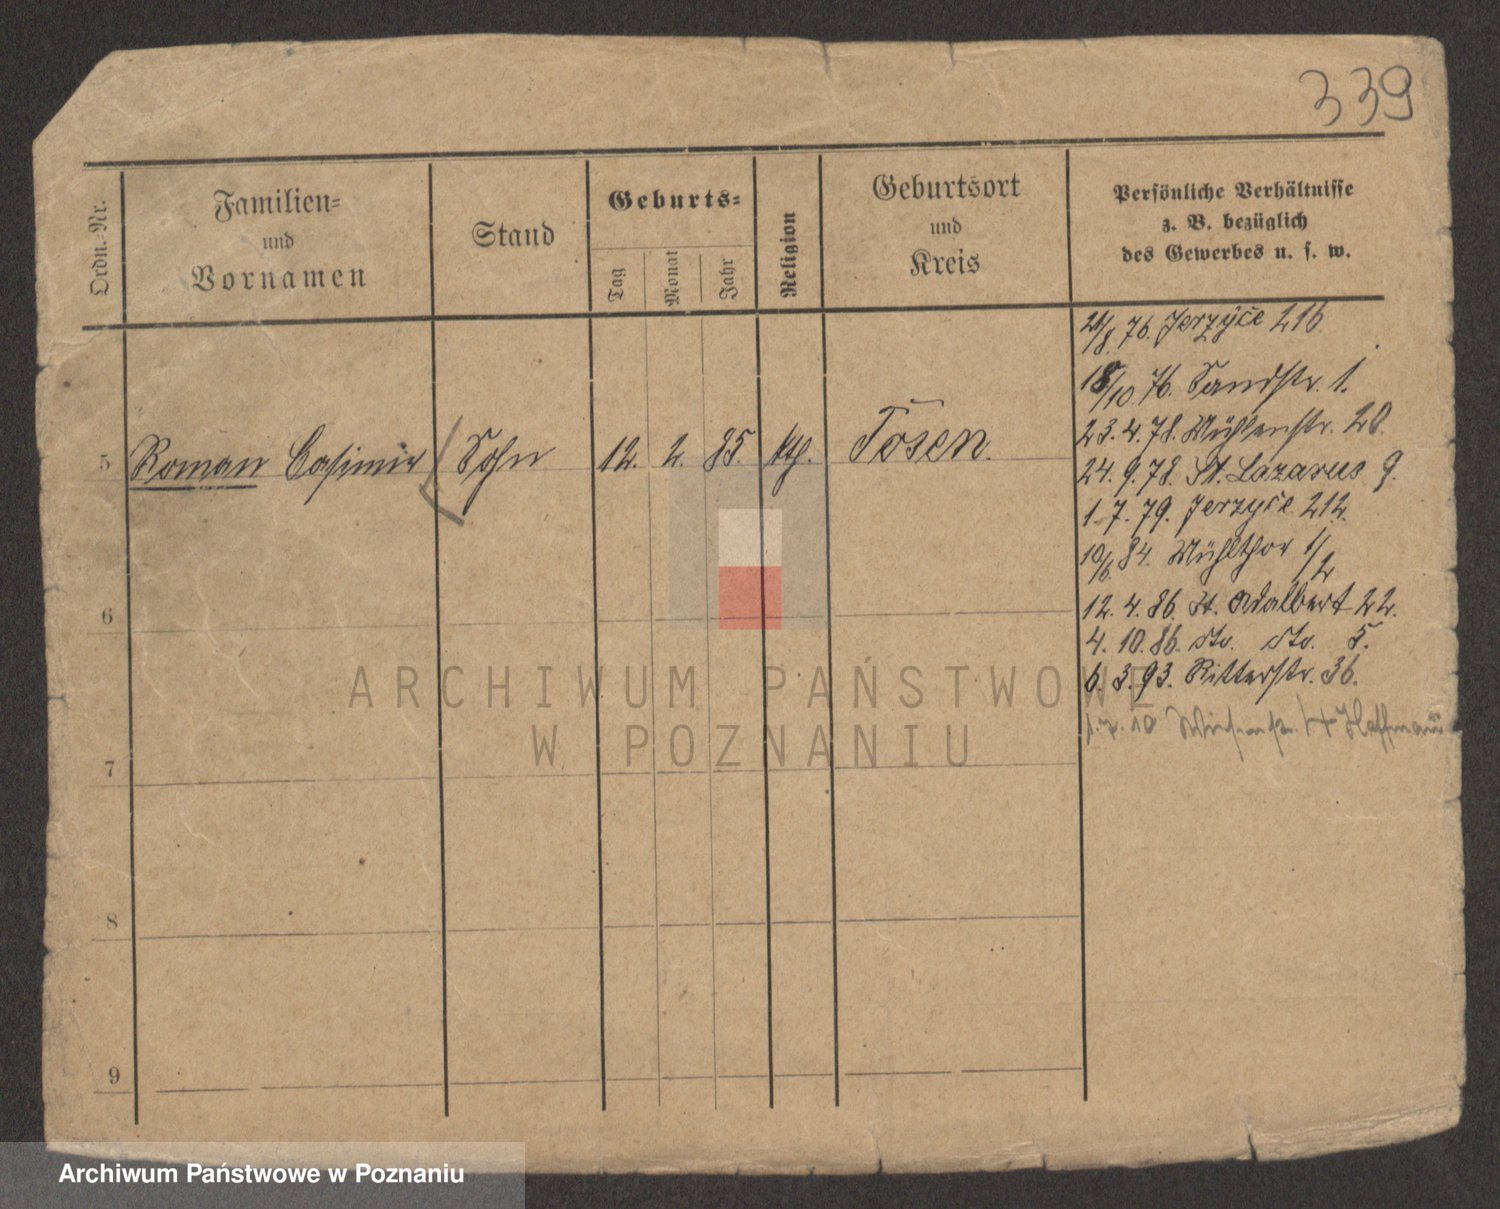 339
Ordn.-Nr.
Familien-
und
Vornamen
Stand
Geburts-
Tag
Monat
Jahr
Religion
Geburtsort
und
Kreis
Persönliche Verhältnisse
z. B. bezüglich
des Gewerbes u. s. w.
21/8. 76. Jerzyce 216
18/10 76. Sandstr. 1.
23. 4. 78. Mühlenstr. 20.
5 Roman Casimir Sohn 12. 2. 85. kth. Posen.
24. 9. 78. St. Lazarus 9.
1. 7. 79. Jerzyce 212.
10/6. 84. Mühlthor 1/2
6
12. 4. 86. St. Adalbert 22.
4. 10. 86. dto. dto. 5.
6. 3. 93. Ritterstr. 36.
1. 7. 10 Hoffmann
ARCHIWUM PAŃSTWOWE
W POZNANIU
7
8
9
Archiwum Państwowe w Poznaniu